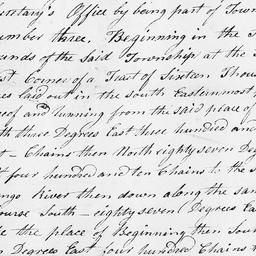 Secretary's Office by being part of Town
number three. Beginning in the
bounds of the Said Township at the S
Corner of a Tract of Sixteen Thous
laid out in the South Easternmost
and running from the said place of
three Degrees East three hundred and
Chains then North eighty seven Deg
four hundred and ten Chains to the
River then down along the same
Course South - eighty seven Degrees Ea
the place of Beginning then Sou
Degrees East four hundred Chains